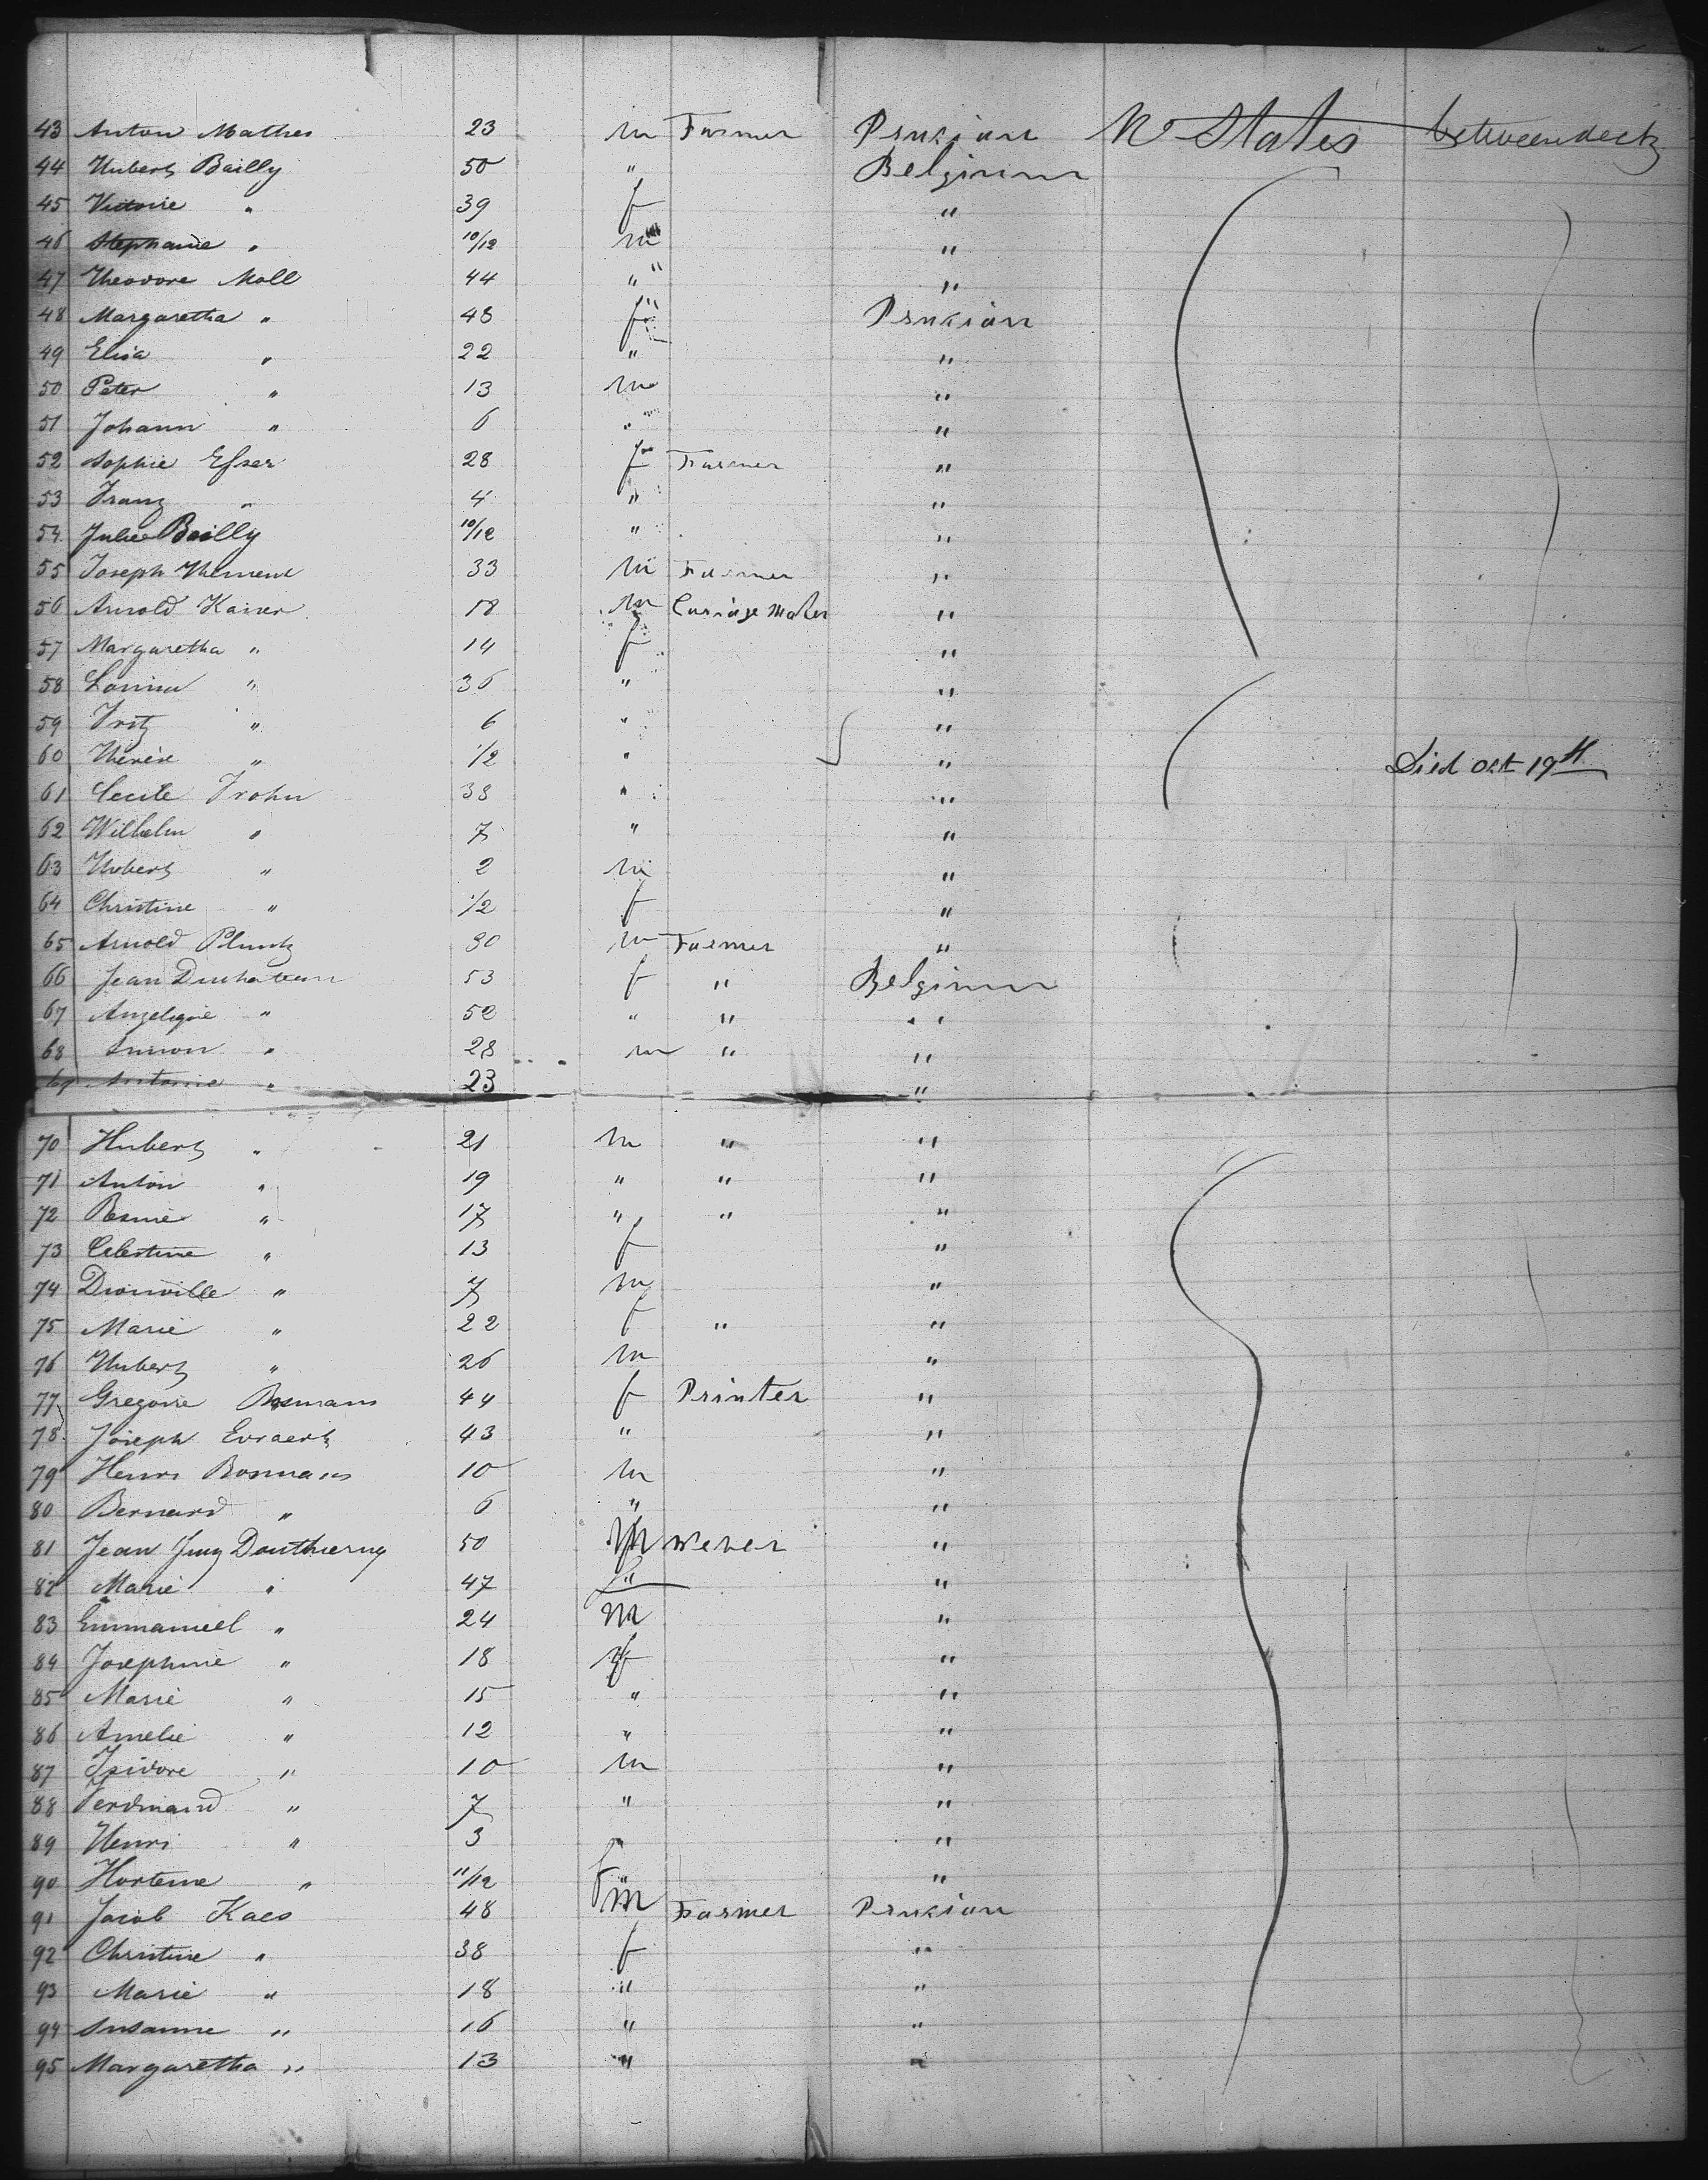 43 Anton Mathes 23 m Farmer Prusian N States betweendeck
44 Hubert Bailly 50 " Belginm
45 Victoire " 39 f "
46 Stephanie " 10/12 m "
47 Theodore Moll 44 " "
48 Margaretha " 48 f Prusian
49 Elisa " 22 " "
50 Peter " 13 m "
51 Johann " 6 " "
52 Sophie Esser 28 f Farmer "
53 Franz " 4 " "
54 Julie Bailly 10/12 " "
55 Joseph 33 m Farmer "
56 Arnold Kaiser 18 m Carriage Maker "
57 Margaretha " 14 f "
58 " 36 " "
59 Fritz " 6 " "
60 Thérèse " 1/2 " " Died Oct 19th
61 Cecile Frohn 38 " "
62 Wilhelm " 7 " "
63 Hubert " 2 m "
64 Christine " 1/2 f "
65 Arnold 30 m Farmer "
66 Jean Duchateau 53 f " Belginm
67 Angelique " 52 " " "
68 Simon " 28 m " "
69 Antonie " 23 "
70 Hubert " 21 m " "
71 Anton " 19 " " "
72 " 17 " " "
73 Celestine " 13 f "
74 " 7 m "
75 Marie " 22 f " "
76 Hubert " 26 m "
77 Gregoire Bosmans 44 f Printer "
78 Joseph Evraert 43 " "
79 Henri Bosmans 10 m "
80 Bernard " 6 " "
81 Jean 50 M Wever "
82 Marie " 47 " "
83 Emmanuel " 24 M "
84 Josephine " 18 f "
85 Marie " 15 " "
86 Amelie " 12 " "
87 Isidore " 10 m "
88 Ferdinand " 7 " "
89 Henri " 3 " "
90 Hortense " 11/12 f "
91 Jacob Kaes 48 M Farmer Prusian
92 Christine " 38 f "
93 Marie " 18 " "
94 Susanne " 16 " "
95 Margaretha " 13 " "